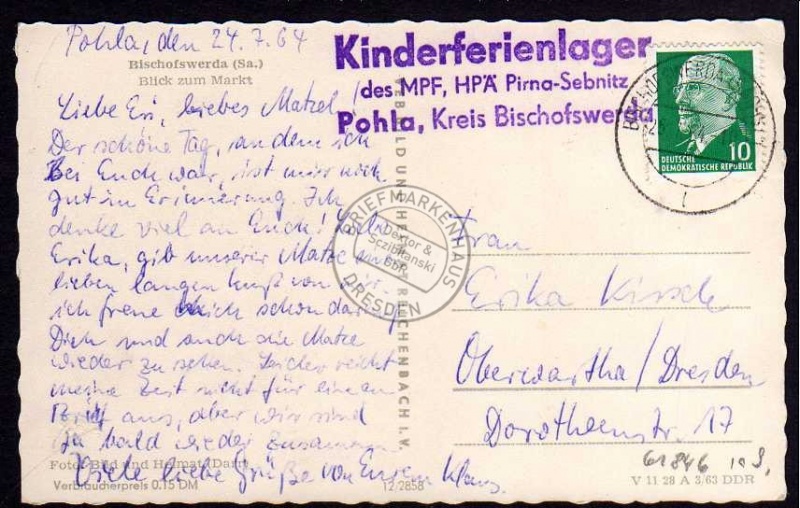 Pohla, den 24.7.64
Bischofswerda (Sa.)
Blick zum Markt
Liebe Eri, liebes Matzel!
Der schöne Tag, an dem ich
bei Euch war, ist mir noch
gut in Erinnerung. Ich
denke viel an Euch! Liebe
Erika, gib unserer Matze einen
lieben langen Kuß von mir.
ich freue mich schon darauf
Dich und auch die Matze
wieder zu sehen. Leider reicht
meine Zeit nicht für einen
Brief aus, aber wir sind
ja bald wieder zusammen.
Viele liebe Grüße von Eurem Klaus.
Foto: Bild und Heimat
Verbraucherpreis 0.15 DM
12/2858
VEB BILD UND HEIMAT REICHENBACH I. V.
Kinderferienlager
des MPF, HPÄ Pirna-Sebnitz
Pohla, Kreis Bischofswerda
10
DEUTSCHE
DEMOKRATISCHE REPUBLIK
BRIEFMARKENHAUS
& Sczibilanski
GbR
DRESDEN
Frau
Erika Kirsch
Oberwartha/Dresden
Dorotheenstr. 17
61846
V 11 28 A 3/63 DDR